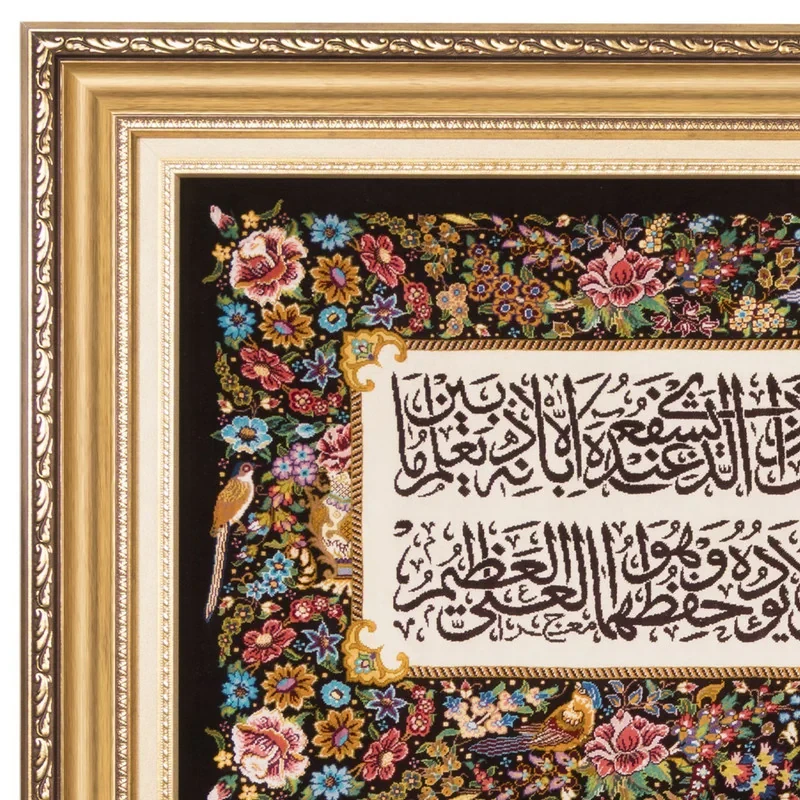 الذی یشفع عنده الا باذنه یعلم ما بین
یؤده حفظهما وهو العلی العظیم